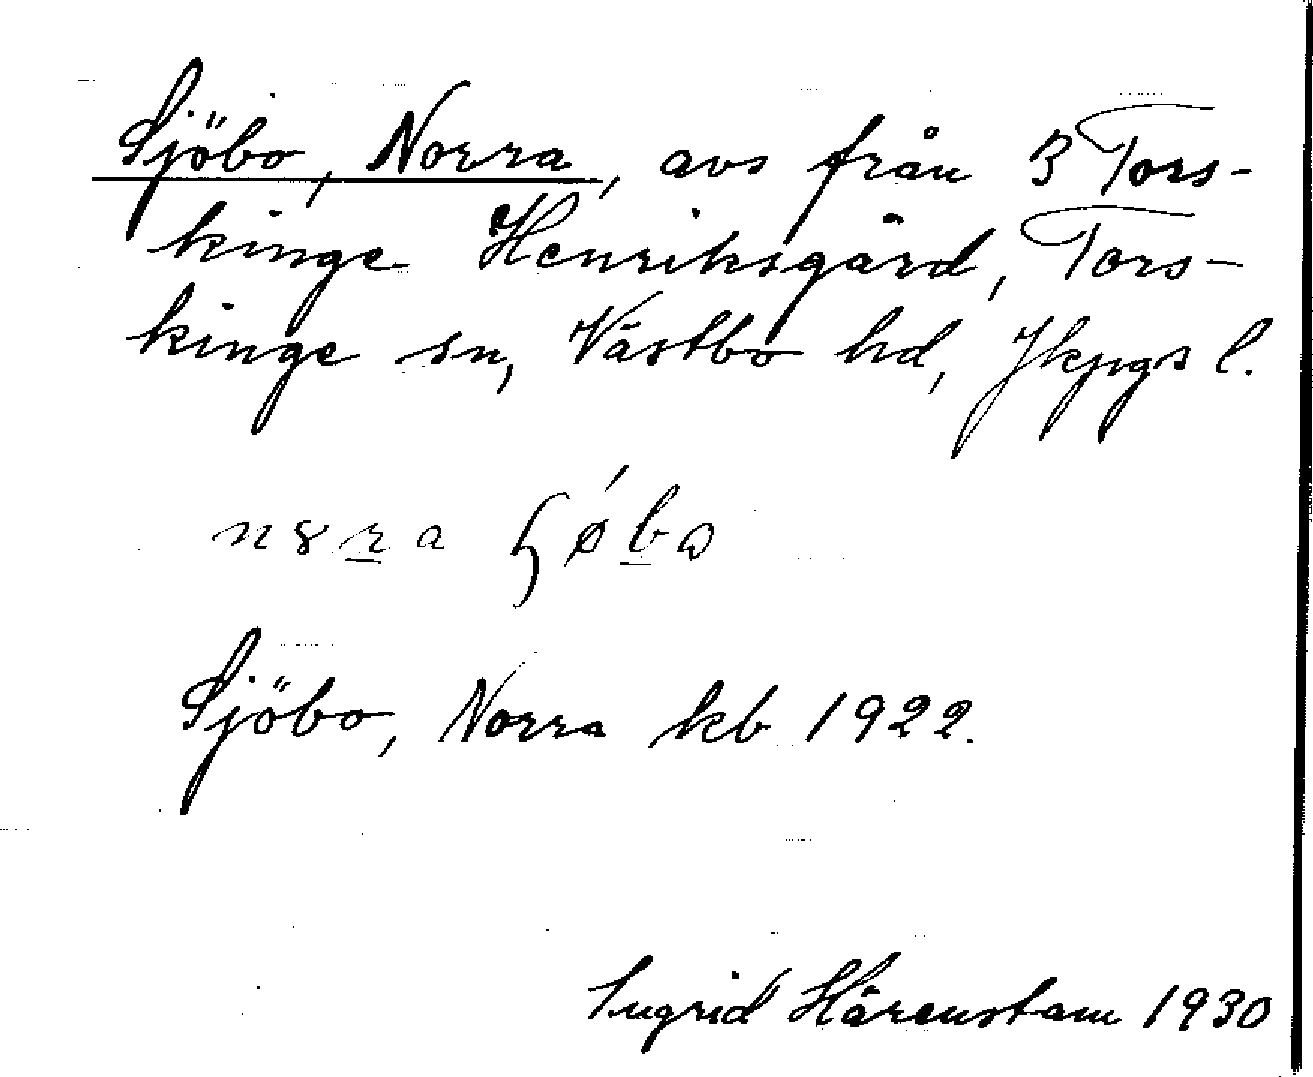 Sjöbo, Norra, avs från 3 Tors-
kinge Henriksgård, Tors-
kinge sn, Västbo hd, Jkpgs l.
n8ra ɧǿbɷ
Sjöbo, Norra kb 1922.
Ingrid Härenstam 1930